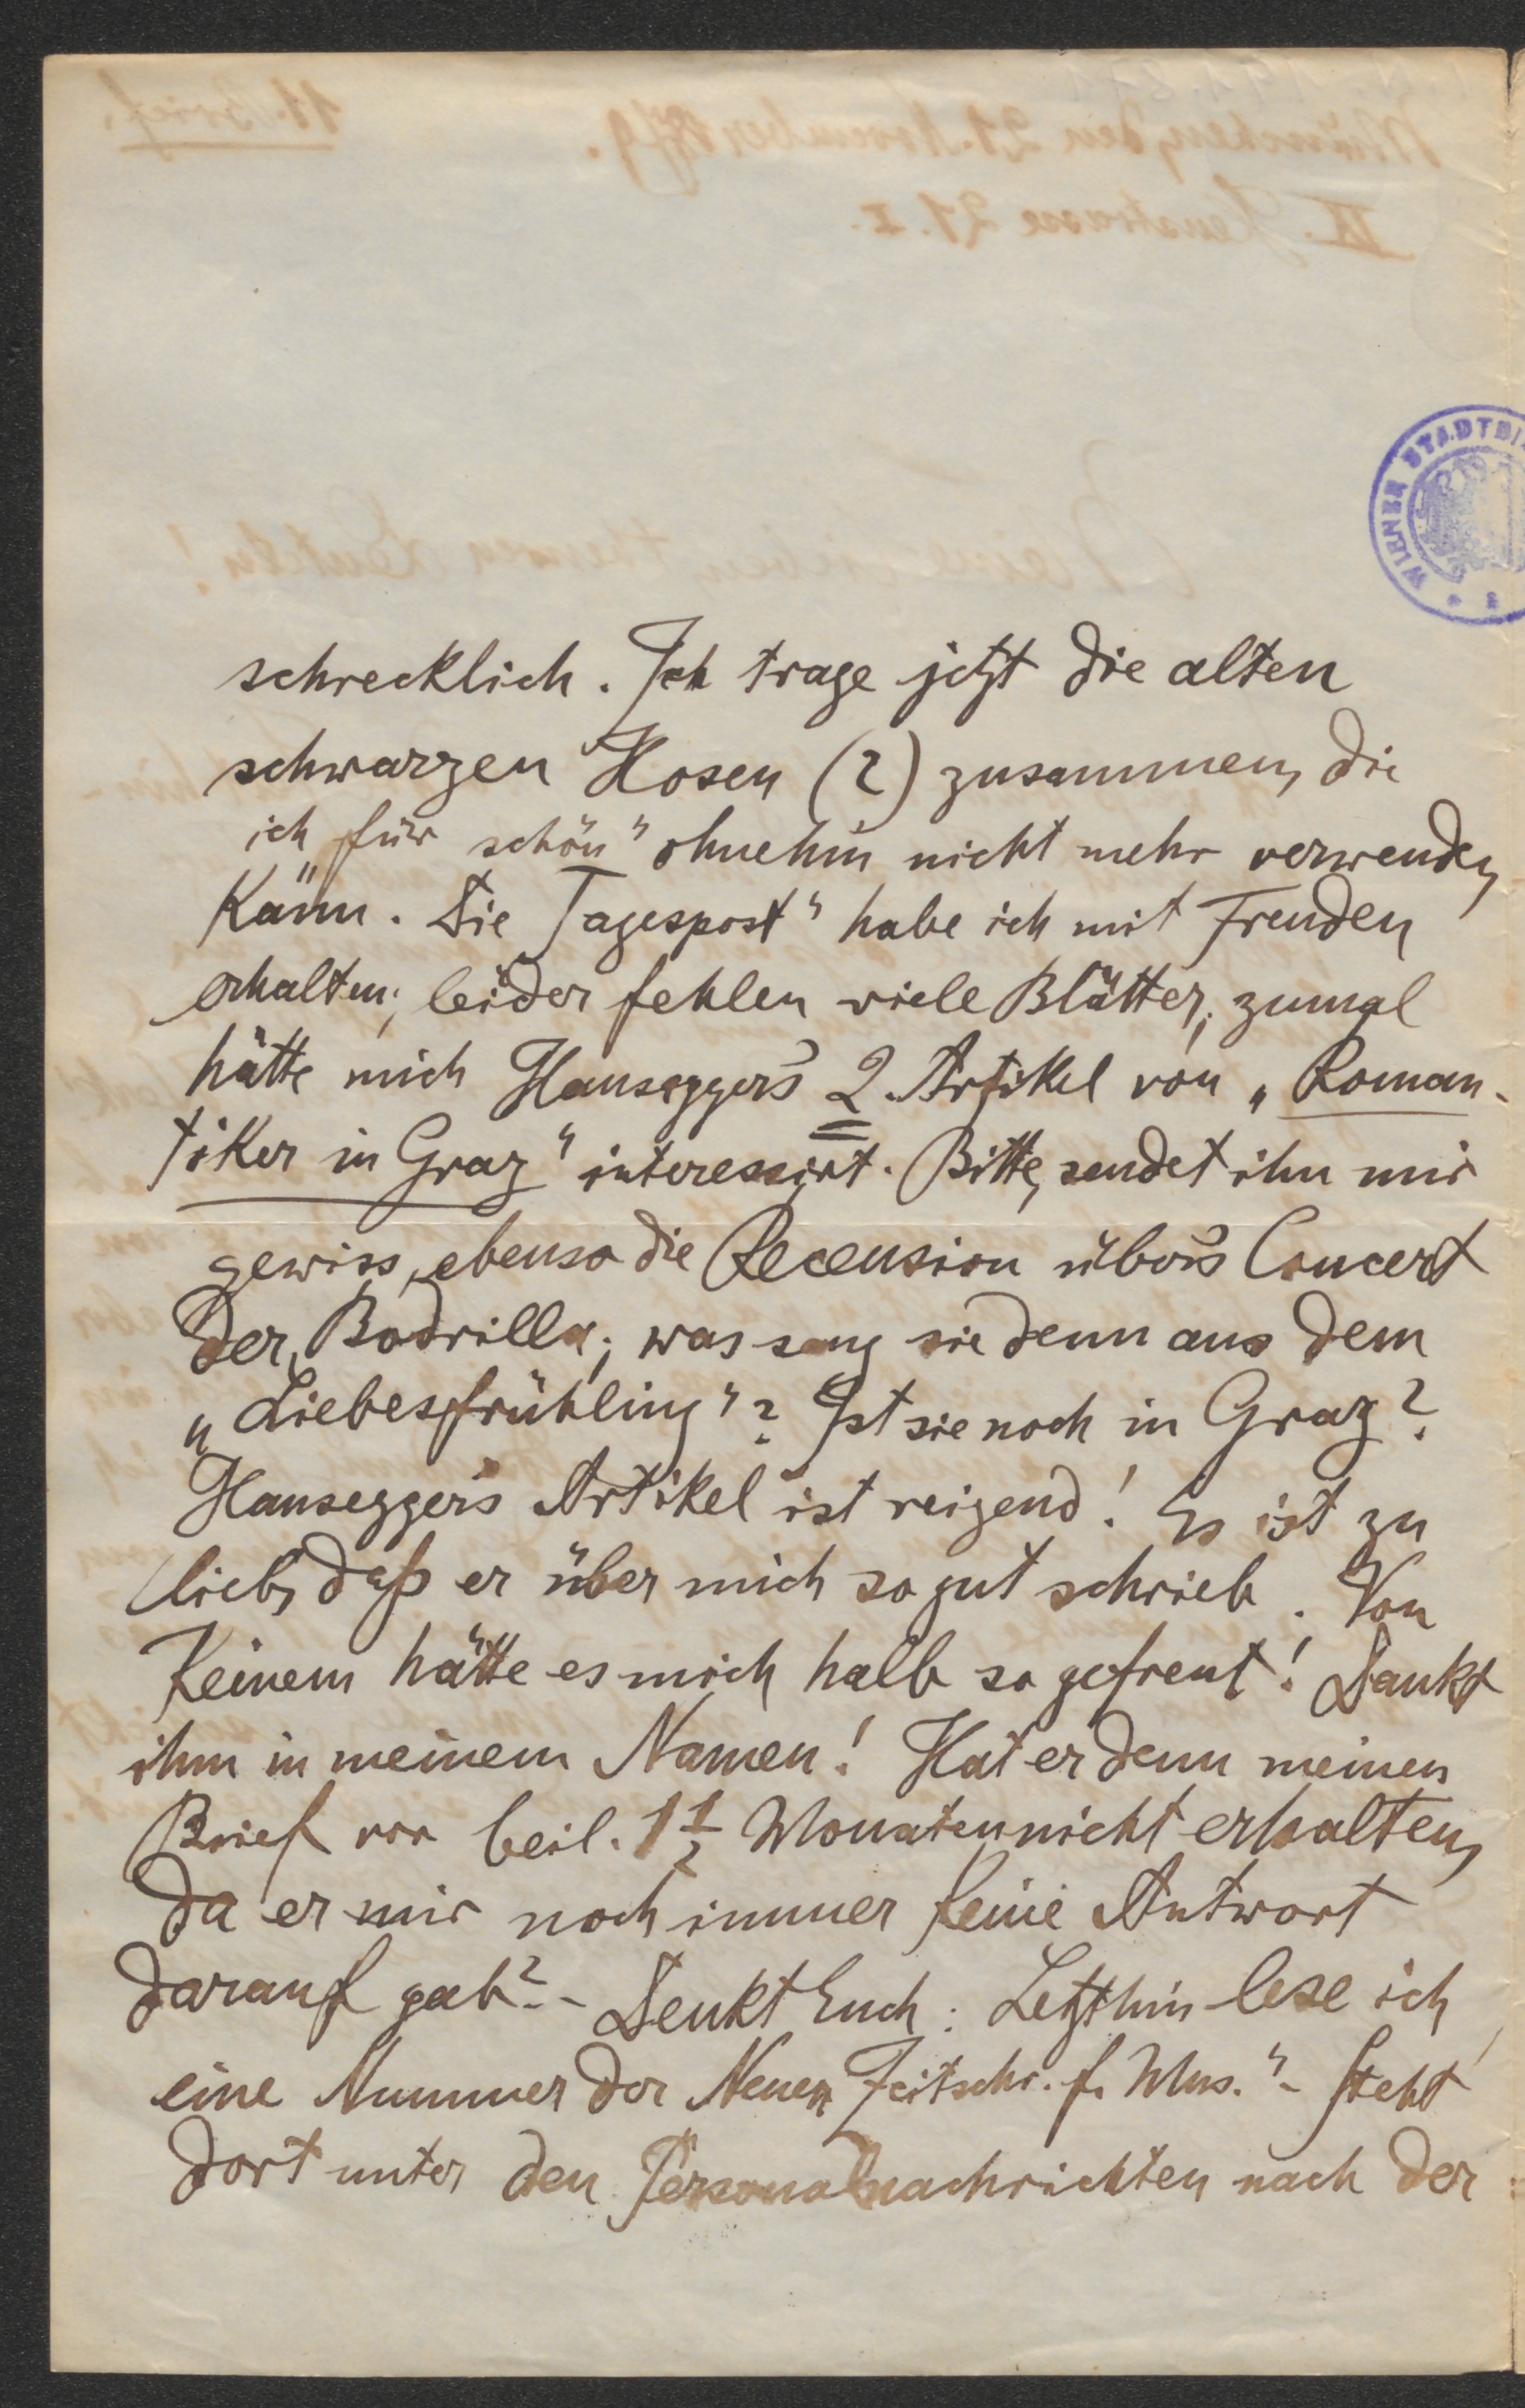 WIENER STADTBI
schrecklich. Ich trage jetzt die alten
schwarzen Hosen (2) zusammen, die
ich „für schön" ohnehin nicht mehr verwenden
kann. Die Tagespost" habe ich mit Freuden
erhalten; leider fehlen viele Blätter; zumal
hätte mich Hausegger's 2. Artikel von „Roman-
tiker in Graz" interessirt. Bitte, sendet ihn mir
gewiss, ebenso die Recension über's Concert
der Bodrilla; was sang sie denn aus dem
„Liebesfrühling"? Ist sie noch in Graz?
Hausegger's Artikel ist reizend! Es ist zu
lieb, daß er über mich so gut schrieb. Von
Keinem hätte es mich halb so gefreut! Dankt
ihm in meinem Namen! Hat er denn meinen
Brief vor beil. 1½ Monaten nicht erhalten,
da er mir noch immer keine Antwort
darauf gab? - Denkt Euch: Letzthin lese ich
eine Nummer der Neuen Zeitschr. f. Mus." - steht
dort unter den Personalnachrichten nach der